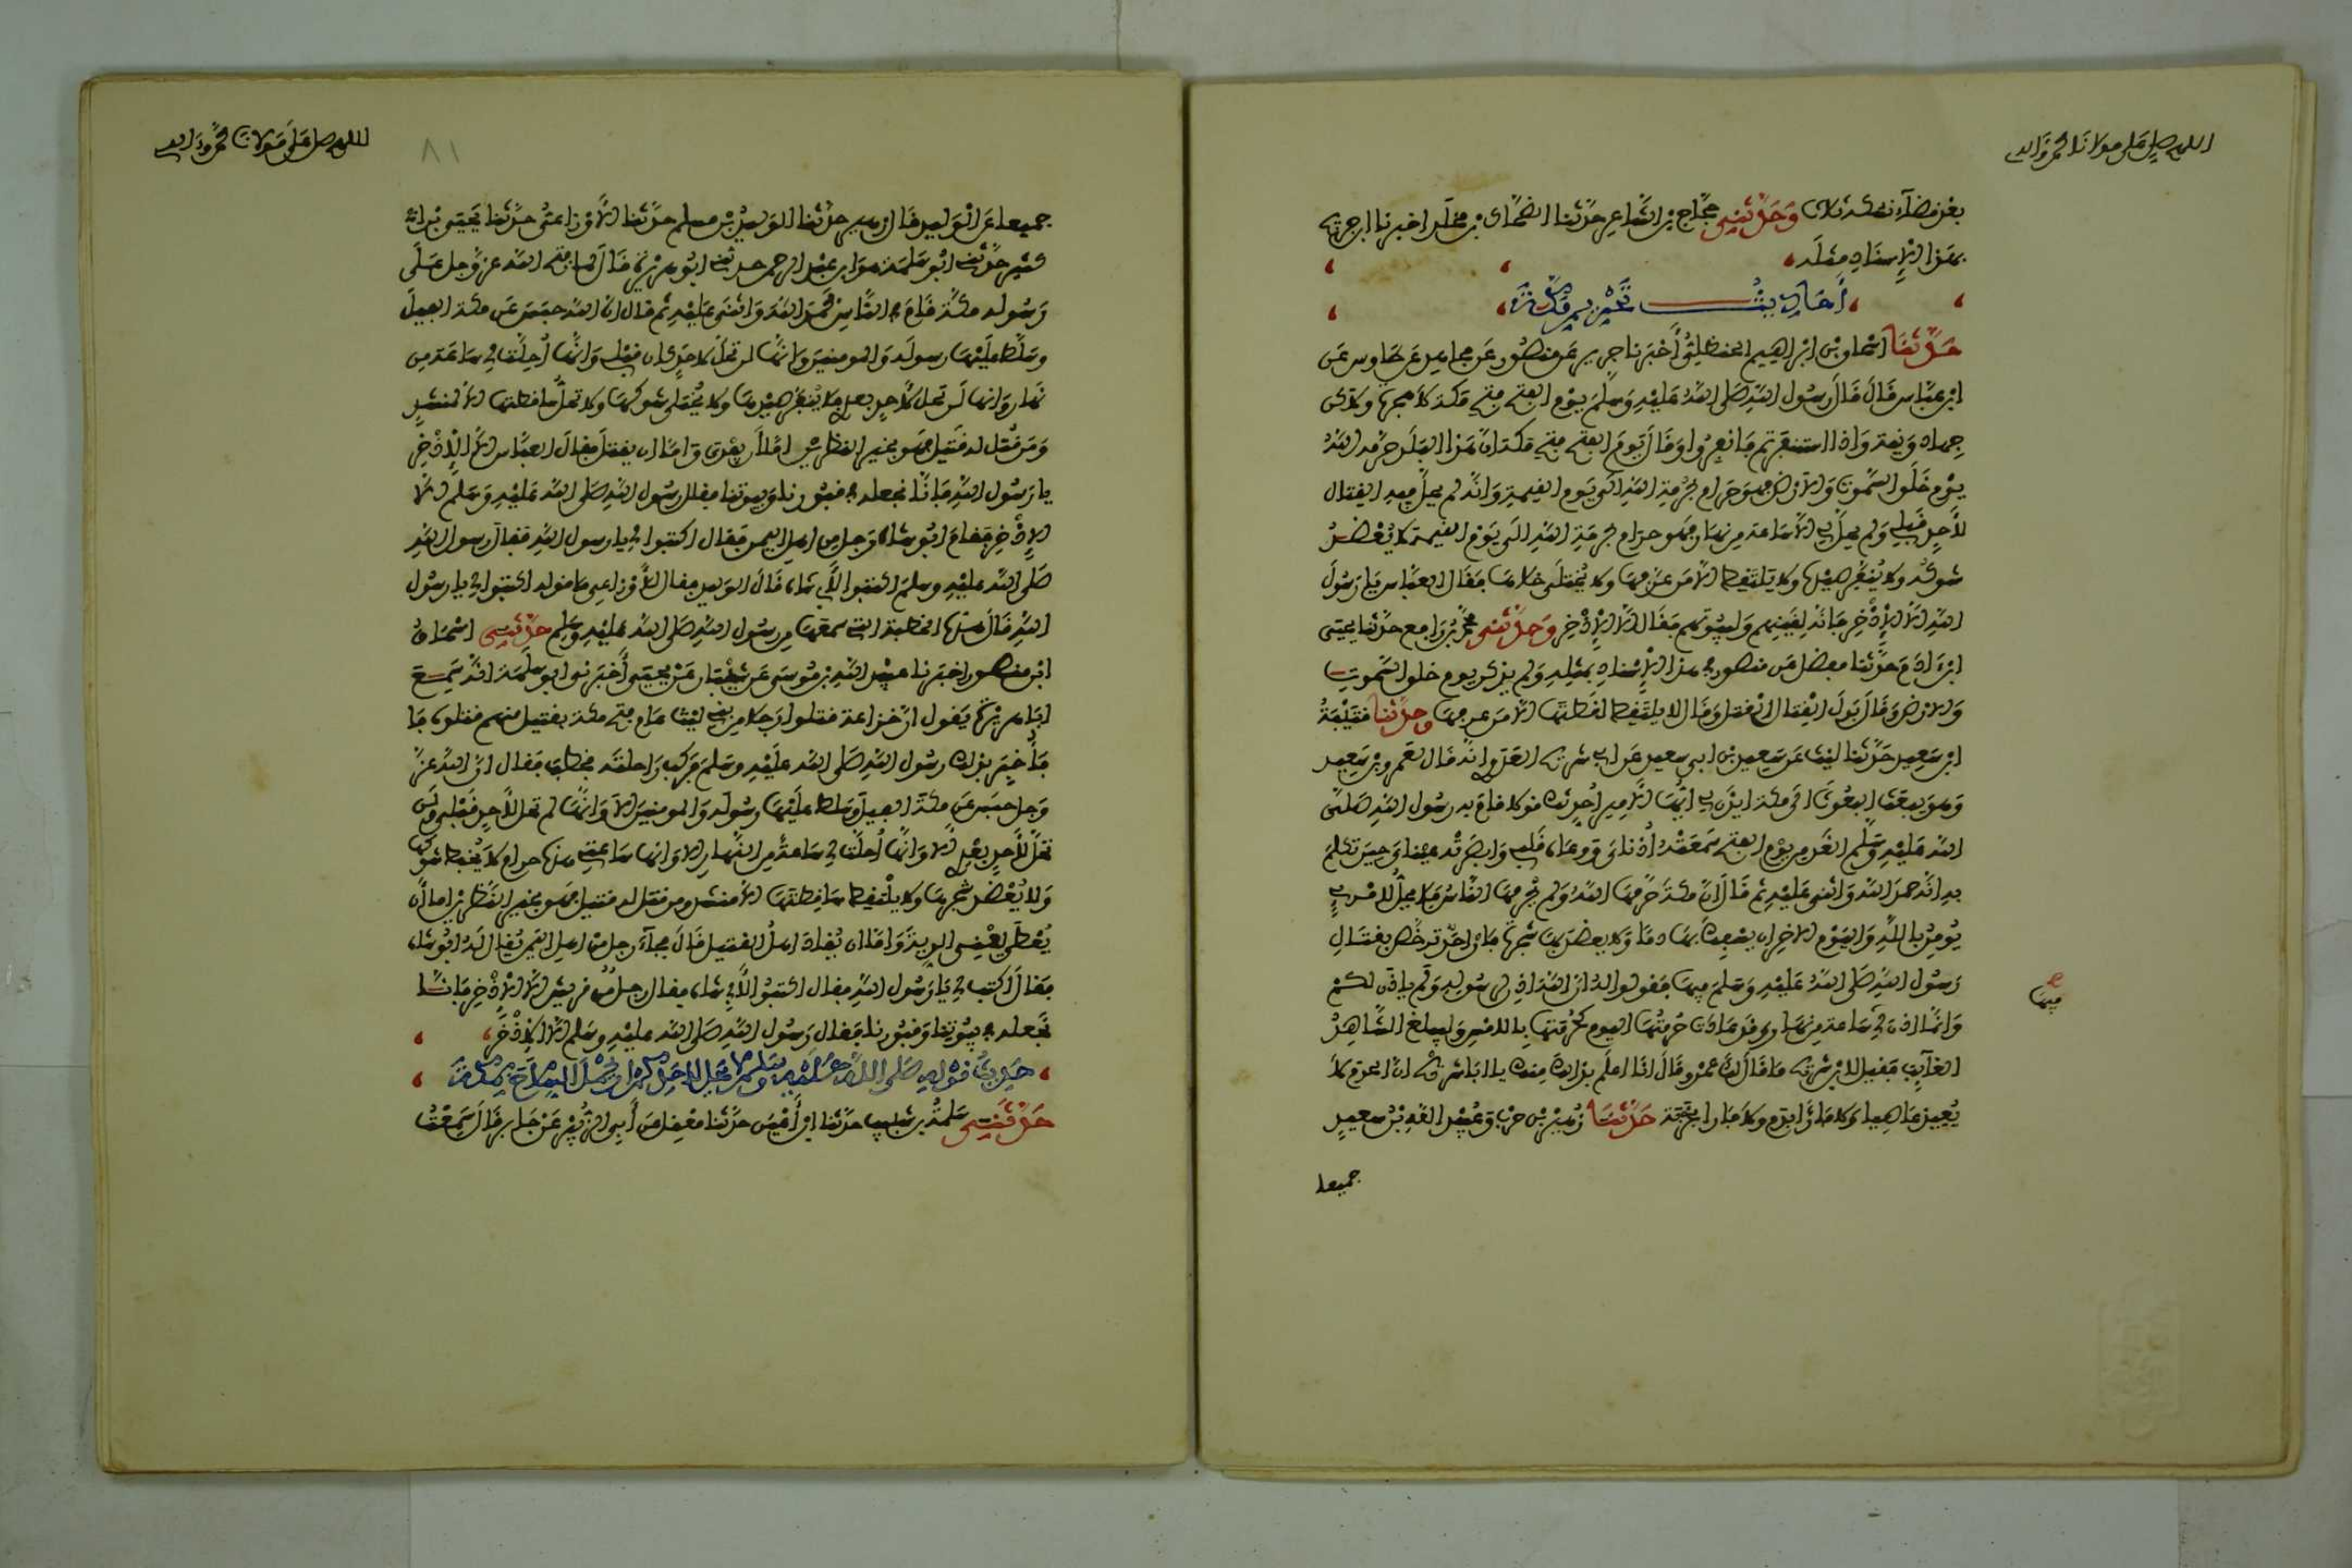 اللهم صل على مولانا محمد واله
بعد قضاء نسكه ثلاث وحدثني حجاج بن الشاعر حدثنا الضحاك بن مخلد اخبرنا ابن جريج
بهذا الاسناد مثله
احاديث تحريم مكة
حدثنا اسحاق بن ابراهيم الحنظلي أخبرنا جرير عن منصور عن مجاهد عن طاوس عن
ابن عباس قال قال رسول الله صلى الله عليه وسلم يوم الفتح فتح مكة لا هجرة ولاكن
جهاد ونية واذا استنفرتم فانفروا وقال يوم الفتح فتح مكة ان هذا البلد حرمه الله
يوم خلق السموت والارض فهو حرام بحرمة الله الى يوم القيمة وانه لم يحل فيه القتال
لأحد قبلي ولم يحل لي الا ساعة من نهار فهو حرام بحرمة الله الى يوم القيمة لا يعضد
شوكه ولا ينفر صيدها ولا يلتقط الا من عرفها ولا يختلى خلاها فقال العباس يا رسول
الله الا الاذخر فانه لقينهم ولبيوتهم فقال الا الاذخر وحدثني محمد بن رافع حدثنا يحيى
ابن ادم حدثنا مفضل عن منصور في هذا الاسناد بمثله ولم يذكر يوم خلق السموت
والارض وقال بدل القتال القتل وقال لا يلتقط لقطتها الا من عرفها وحدثنا قتيبة
ابن سعيد حدثنا ليث عن سعيد بن ابي سعيد عن ابي شريح العدوي انه قال لعمرو بن سعيد
وهو يبعث البعوث الى مكة ايذن لي ايها الامير أحدثك قولا قام به رسول الله صلى
الله عليه وسلم الغد من يوم الفتح سمعته أذناي ووعاه قلبي وابصرته عيناي حين تكلم
به انه حمد الله واثنى عليه ثم قال ان مكة حرمها الله ولم يحرمها الناس فلا يحل لامرئ
يومن بالله واليوم الاخر ان يسفك بها دما ولا يعضد بها شجرة فان احد ترخص بقتال
رسول الله صلى الله عليه وسلم فيها فقولوا له ان الله اذن لرسوله ولم ياذن لكم
فيها
وانما اذن لي ساعة من نهار وقد عادت حرمتها اليوم كحرمتها بالامس وليبلغ الشاهد
الغايب فقيل لابي شريح ما قال لك عمرو قال انا اعلم بذلك منك يا ابا شريح ان الحرم لا
يعيذ عاصيا ولا فارا بدم ولا فارا بخربة حدثنا زهير بن حرب وعبيد الله بن سعيد
جميعا
اللهم صل على مولانا محمد واله
٨١
جميعا عن الوليد قال زهير حدثنا الوليد بن مسلم حدثنا الاوزاعي حدثنا يحيى بن ابي
كثير حدثني ابو سلمة هو ابن عبد الرحمن حدثني ابو هريرة قال لما فتح الله عز وجل على
رسوله مكة قام في الناس فحمد الله واثنى عليه ثم قال ان الله حبس عن مكة الفيل
وسلط عليها رسوله والمومنين وانها لن تحل لاحد كان قبلي وانها أحلت لي ساعة من
نهار وانها لن تحل لاحد بعدي فلا ينفر صيدها ولا يختلى شوكها ولا تحل ساقطتها الا لمنشد
ومن قتل له قتيل فهو بخير النظرين اما ان يفدى واما ان يقتل فقال العباس الا الاذخر
يا رسول الله فانا نجعله في قبورنا وبيوتنا فقال رسول الله صلى الله عليه وسلم الا
الاذخر فقام ابو شاه رجل من اهل اليمن فقال اكتبوا لي يا رسول الله فقال رسول الله
صلى الله عليه وسلم اكتبوا لأبي شاه قال الوليد فقلت للأوزاعي ما قوله اكتبوا لي يا رسول
الله قال هذه الخطبة التي سمعها من رسول الله صلى الله عليه وسلم حدثني اسحاق
ابن منصور اخبرنا عبيد الله بن موسى عن شيبان عن يحيى أخبرني ابو سلمة انه سمع
ابا هريرة يقول ان خزاعة قتلوا رجلا من بني ليث عام فتح مكة بقتيل منهم قتلوه فا
فأخبر بذلك رسول الله صلى الله عليه وسلم فركب راحلته فخطب فقال ان الله عز
وجل حبس عن مكة الفيل وسلط عليها رسوله والمومنين الا وانها لم تحل لأحد قبلي ولن
تحل لأحد بعدي الا وانها أحلت لي ساعة من النهار الا وانها ساعتي هذه حرام لا يخبط شوكها
ولا يعضد شجرها ولا يلتقط ساقطتها الا منشد ومن قتل له قتيل فهو بخير النظرين اما ان
يعطى يعني الدية واما ان يقاد اهل القتيل قال فجاء رجل من اهل اليمن يقال له ابو شاه
فقال اكتب لي يا رسول الله فقال اكتبوا لأبي شاه فقال رجل من قريش الا الاذخر فانا
نجعله في بيوتنا وقبورنا فقال رسول الله صلى الله عليه وسلم الا الاذخر
حديث قوله صلى الله عليه وسلم لا يحل لاحدكم ان يحمل السلاح بمكة
حدثني سلمة بن شبيب حدثنا ابن أعين حدثنا معقل عن أبي الزبير عن جابر قال سمعت